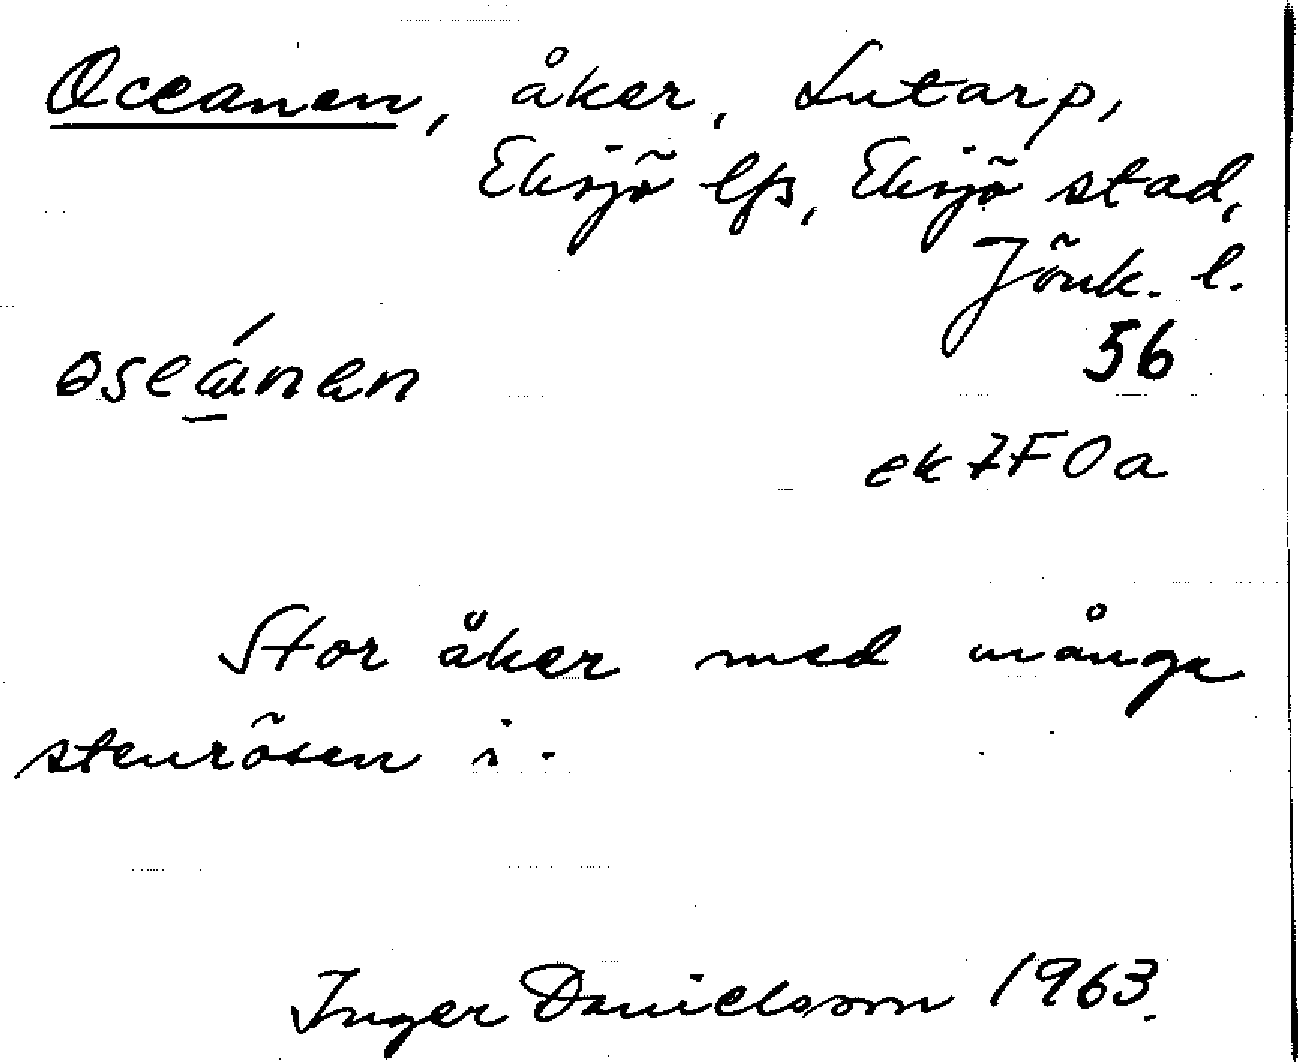 Oceanen, åker, Lutarp,
Eksjö lfs, Eksjö stad,
Jönk. l.
56
øseánen
ek 7F0a
Stor åker med många
stenrösen i.
Inger Danielsson 1963.